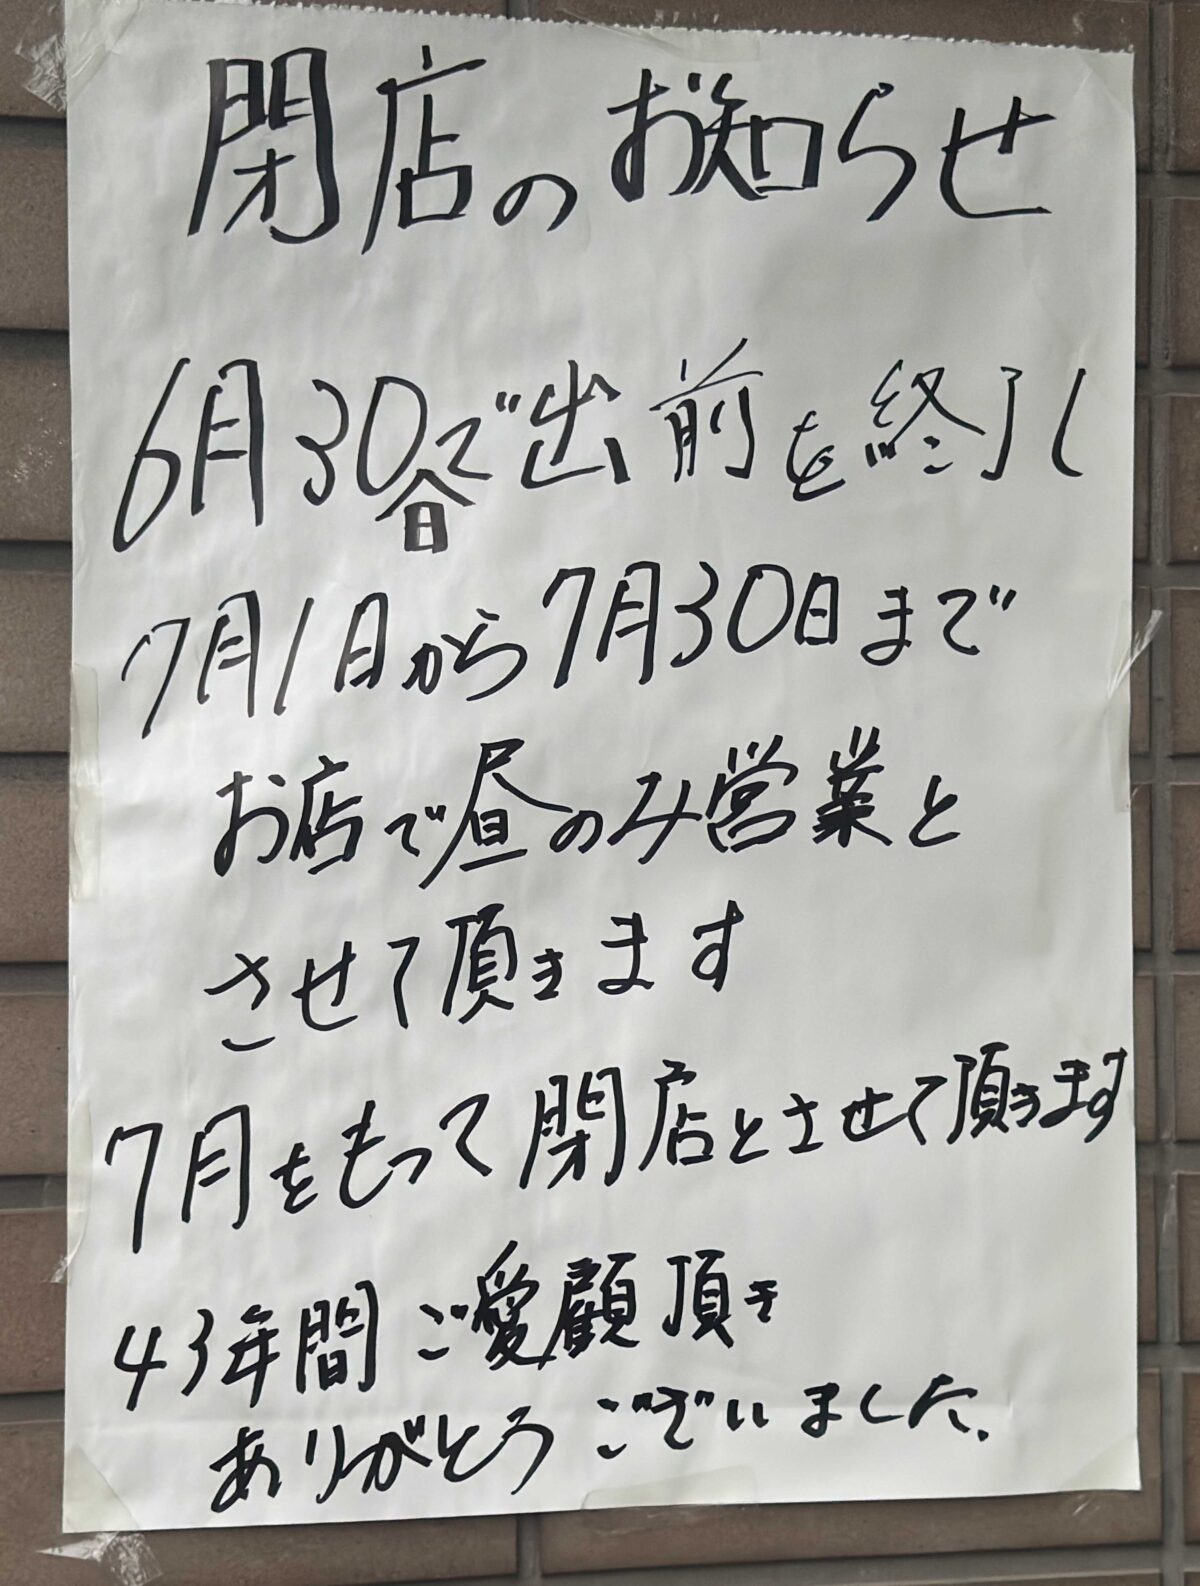 閉店のお知らせ
6月30日で出前を終了し
7月1日から7月30日まで
お店で昼のみ営業と
させて頂きます
7月をもって閉店とさせて頂きます
43年間ご愛顧頂き
ありがとうございました。